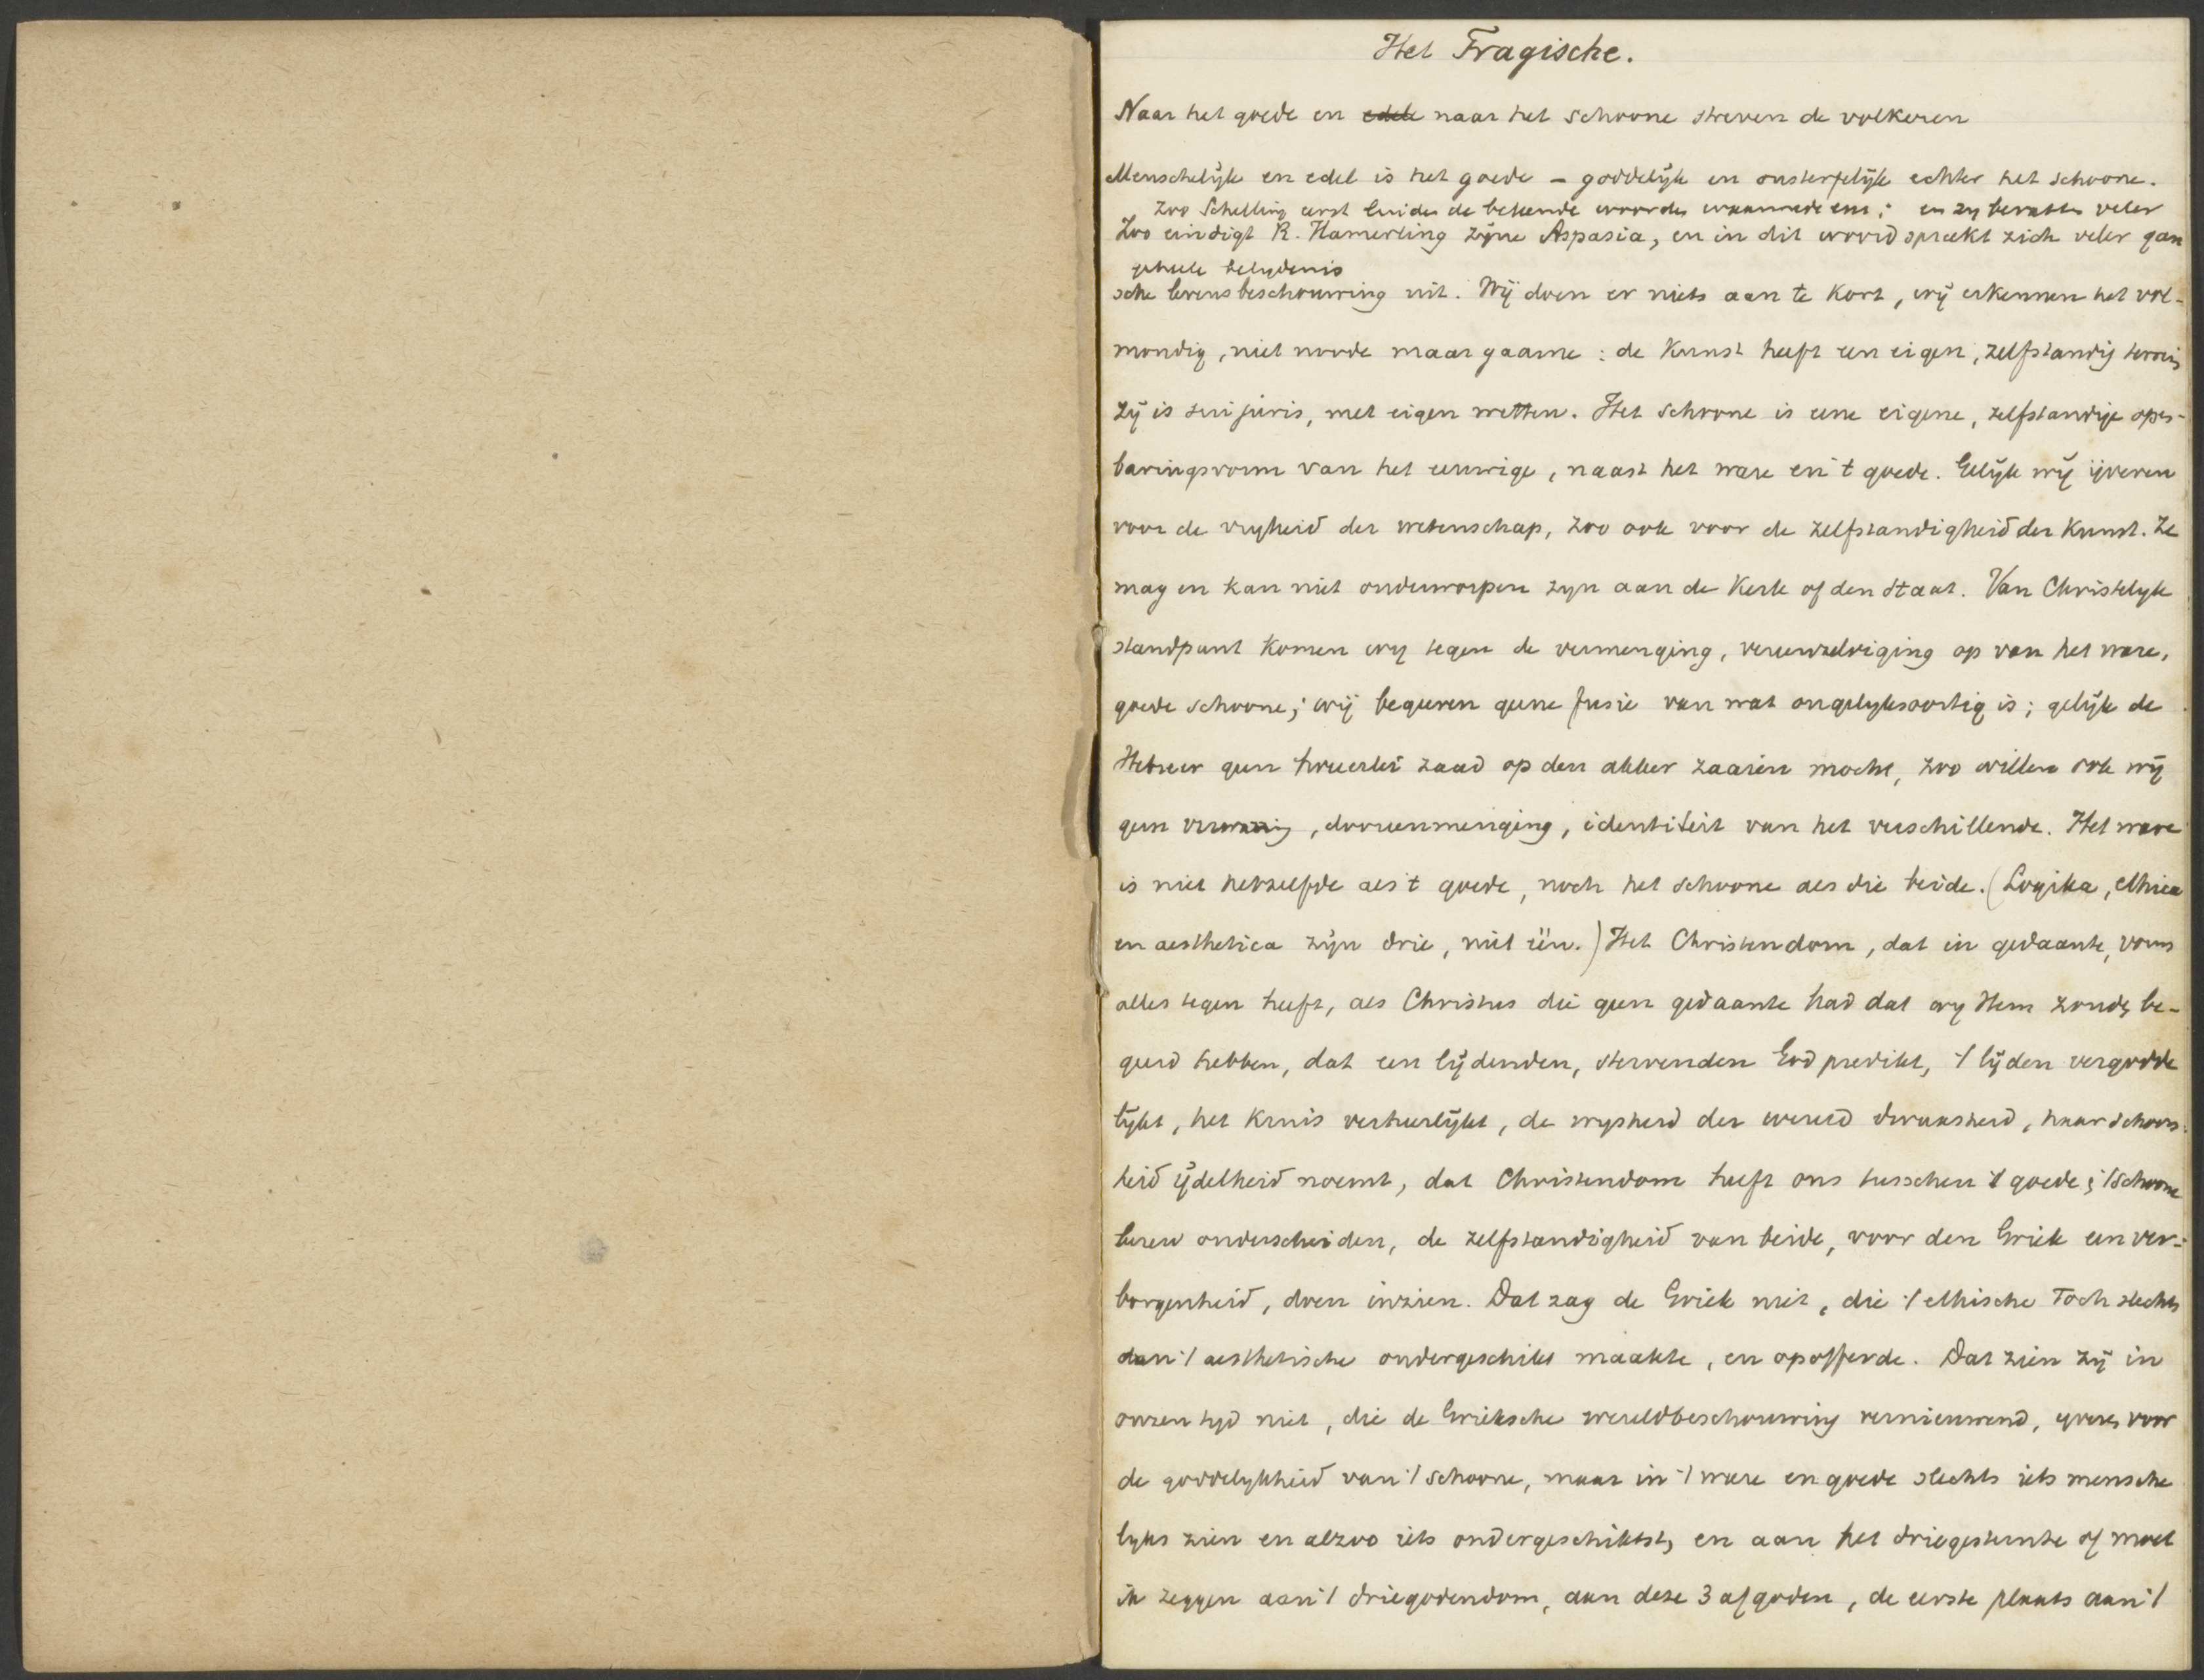 Het Tragische.
Naar het goede en edele naar het schoone streven de volkeren
Menschelijk en edel is het goede – goddelijk en onsterfelijk echter het schoone.
Zoo Schelling eerst luiden de bekende woorden waarmede en zij veler
Zoo eindigt R. Hamerling zijne Aspasia, en in dit woord spreekt zich veler gan
geheele belydenis
sche levensbeschouwing uit. Wij doen er niets aan te kort, wij erkennen het vol-
mondig, niet noode maar gaarne: de Kunst heeft een eigen, zelfstandig terrein
zij is sui juris, met eigen wetten. Het schoone is eene eigene, zelfstandige open-
baringsvorm van het eeuwige, naast het ware en 't goede. Gelijk wij ijveren
voor de vryheid der wetenschap, zoo ook voor de zelfstandigheid der Kunst. Ze
mag en kan niet onderworpen zyn aan de Kerk of den Staat. Van Christelyk
standpunt komen wy tegen de vermenging, vereenzelviging op van het ware,
goede schoone; wij begeeren geene fusie van wat ongelyksoortig is; gelijk de
Hebreer geen tweeerlei zaad op den akker zaaien mocht, zoo willen ook wij
geen , dooreenmenging, identiteit van het verschillende. Het ware
is niet hetzelfde als 't goede, noch het schoone als die beide. (Logika, ethica
en aesthetica zijn drie, niet één.) Het Christendom, dat in gedaante, vorm
alles tegen heeft, als Christus die geen gedaante had dat wy Hem zouden be-
geerd hebben, dat een lijdenden, stervenden God predikt, 't lijden vergodde
lijkt, het kruis verheerlijkt, de wysheid der wereld dwaasheid, haar schoon-
heid ijdelheid noemt, dat Christendom heeft ons tusschen 't goede & 't schoone
leeren onderscheiden, de zelfstandigheid van beide, voor den Griek een ver-
borgenheid, doen inzien. Dat zag de Griek niet, die 't ethische toch slechts
aan 't aesthetische ondergeschikt maakte, en opofferde. Dat zien zij in
onzen tyd niet, die de Grieksche wereldbeschouwing vernieuwend, yveren voor
de goddelykheid van 't schoone, maar in 't ware en goede slechts iets mensche
lyks zien en alzoo iets ondergeschikts, en aan het driegesternte of moet
ik zeggen aan 't driegodendom, aan deze 3 afgoden, de eerste plaats aan 't